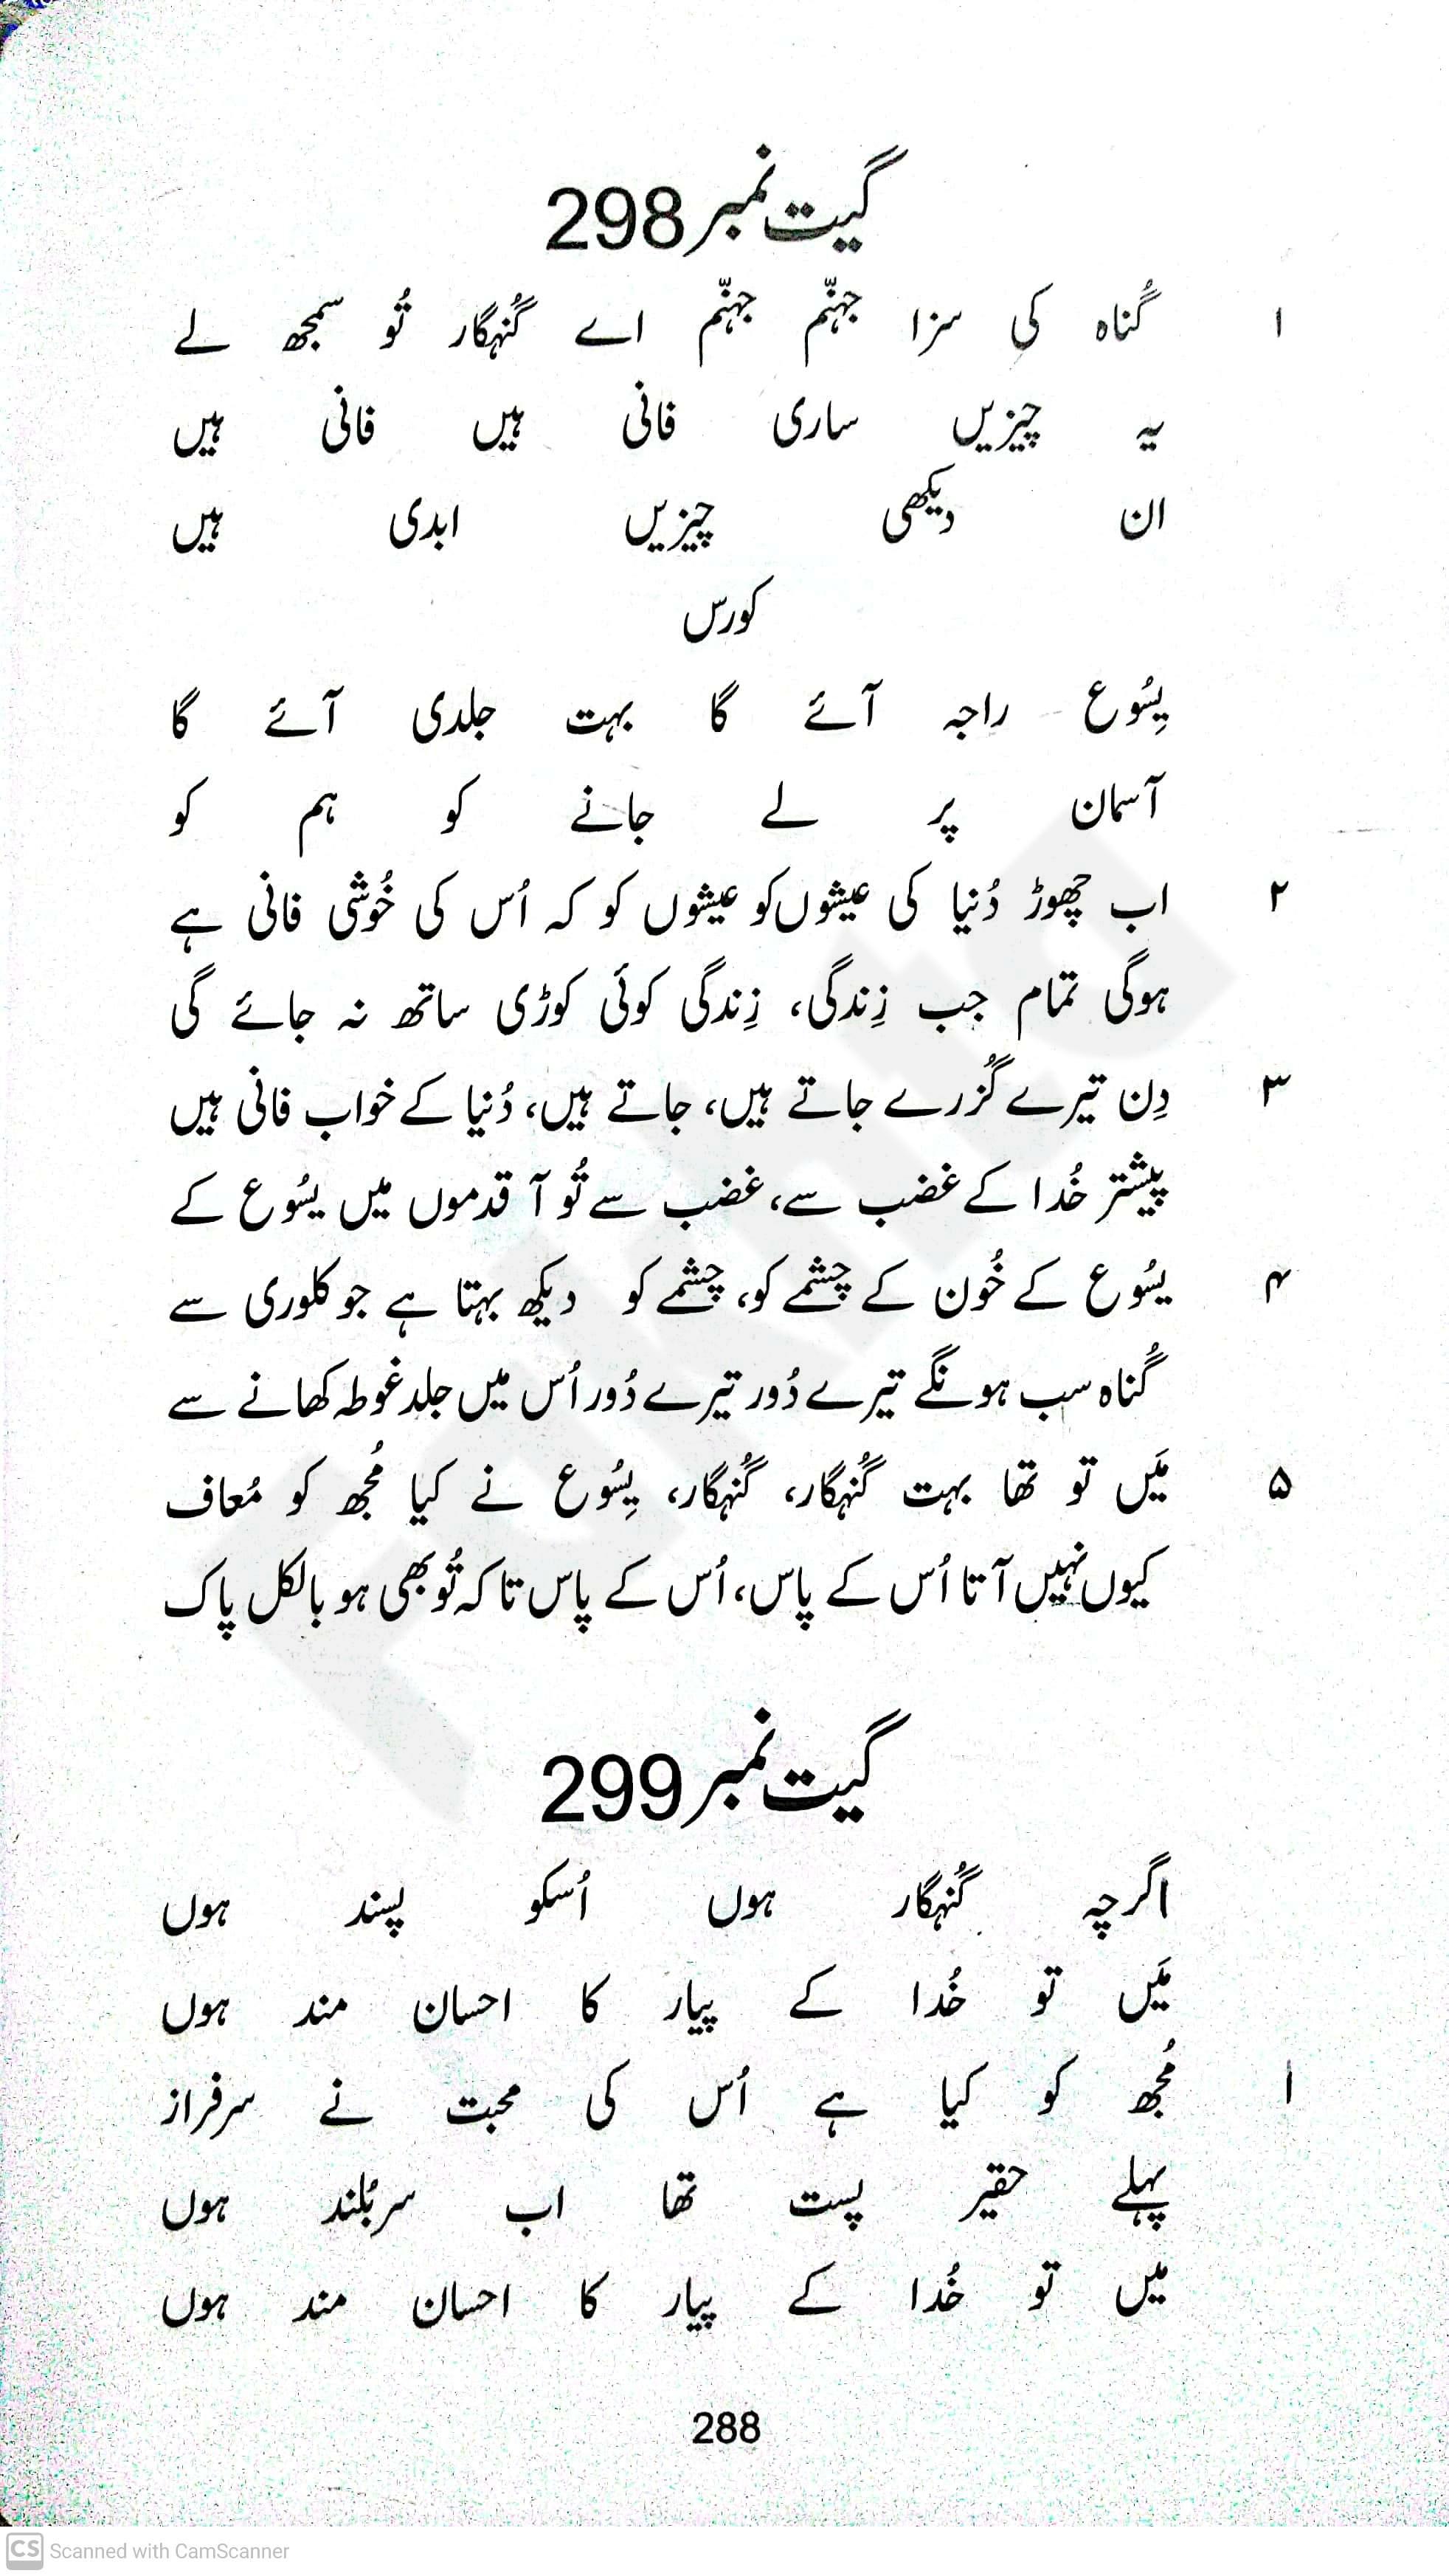 گیت نمبر 298
۱ گُناہ کی سزا جہنّم جہنّم اے گُنہگار تُو سمجھ لے
یہ چیزیں ساری فانی ہیں فانی ہیں
ان دیکھی چیزیں ابدی ہیں
کورس
یِسُوع راجہ آئے گا بہت جلدی آئے گا
آسمان پر لے جانے کو ہم کو
۲ اب چھوڑ دُنیا کی عیشوں کو عیشوں کو کہ اُس کی خُوشی فانی ہے
ہوگی تمام جب زِندگی، زِندگی کوئی کوڑی ساتھ نہ جائے گی
۳ دِن تیرے گُزرے جاتے ہیں، جاتے ہیں، دُنیا کے خواب فانی ہیں
پیشتر خُدا کے غضب سے، غضب سے تُو آ قدموں میں یسُوع کے
۴ یسُوع کے خُون کے چشمے کو، چشمے کو دیکھ بہتا ہے جو کلوری سے
گُناہ سب ہونگے تیرے دُور تیرے دُور اُس میں جلد غوطہ کھانے سے
۵ مَیں تو تھا بہت گُنہگار، گُنہگار، یِسُوع نے کیا مُجھ کو مُعاف
کیوں نہیں آتا اُس کے پاس، اُس کے پاس تاکہ تُو بھی ہو بالکل پاک
گیت نمبر 299
اگرچہ گُنہگار ہوں اُسکو پسند ہوں
مَیں تو خُدا کے پیار کا احسان مند ہوں
۱ مُجھ کو کیا ہے اُس کی محبت نے سرفراز
پہلے حقیر پست تھا اب سربُلند ہوں
میں تو خُدا کے پیار کا احسان مند ہوں
288
CS Scanned with CamScanner